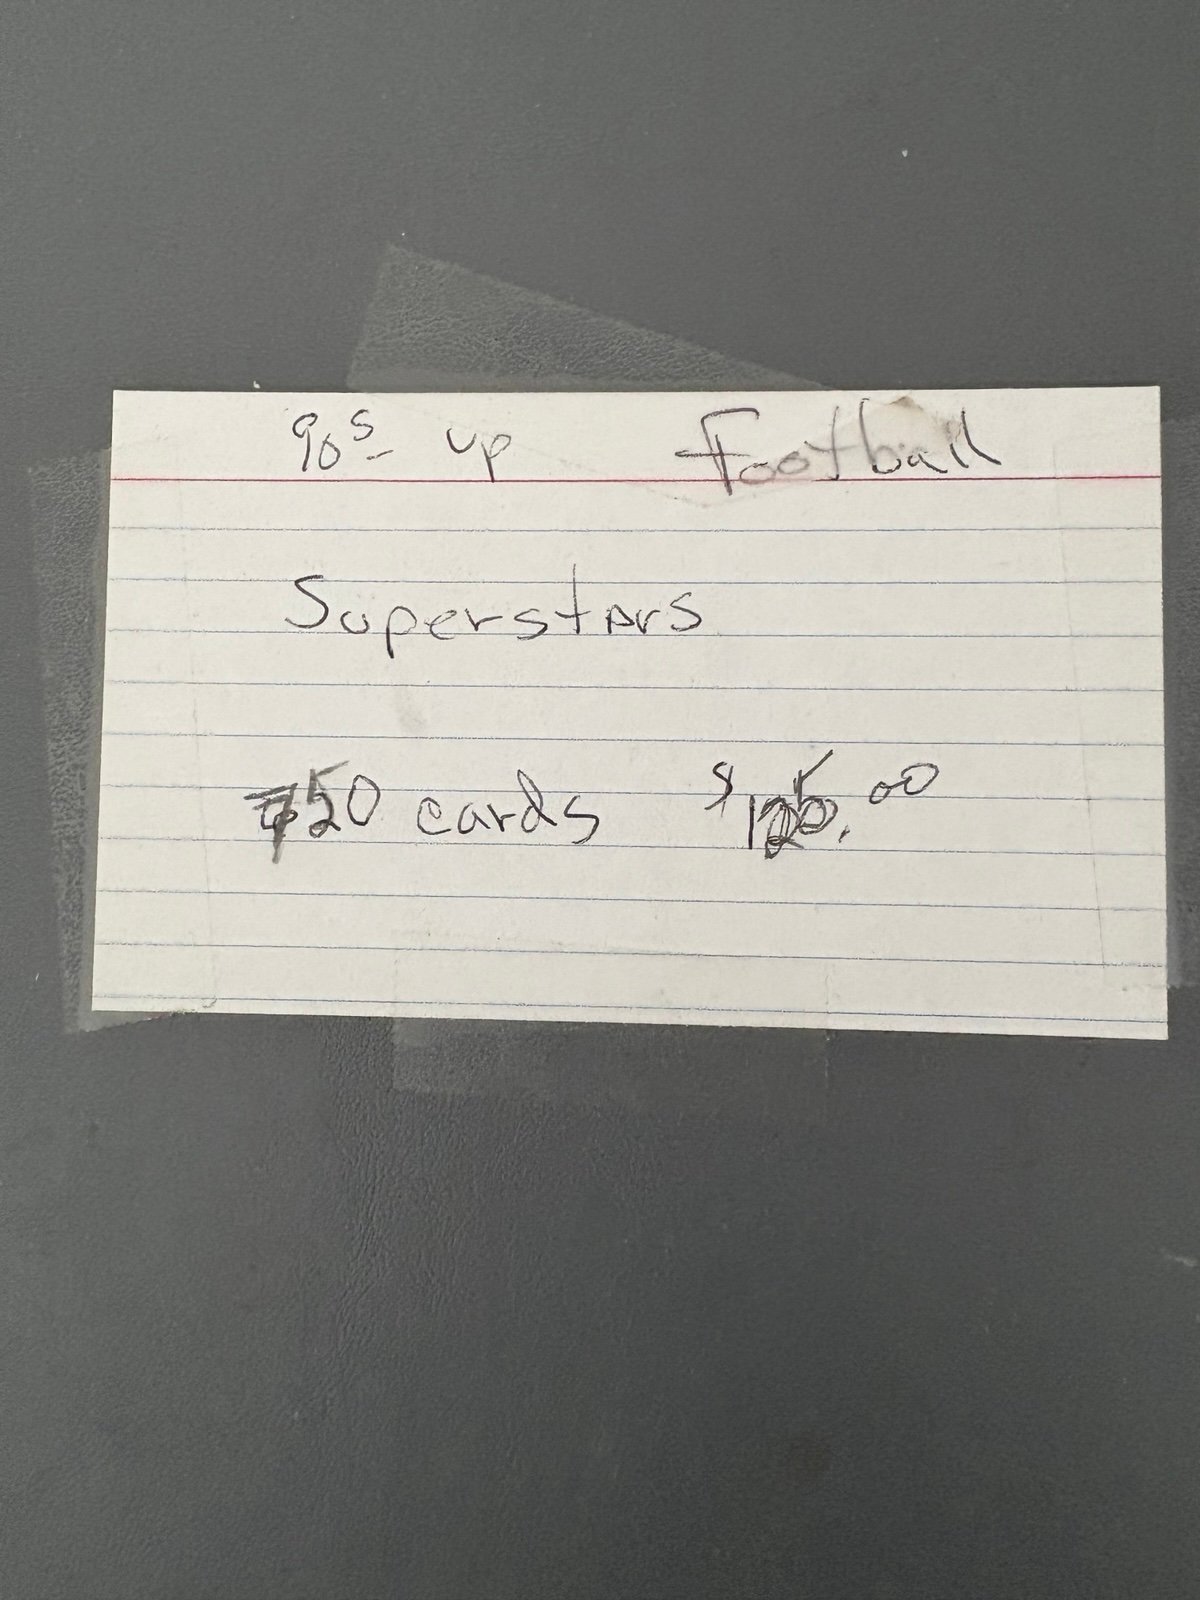 90s up Football
Superstars
750 cards $125.00